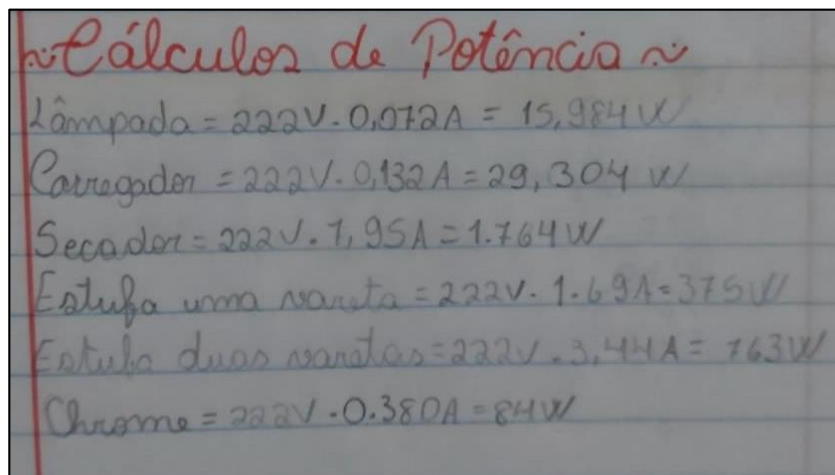 ~Cálculos de Potência~
Lâmpada = 222V. 0,072A = 15,984W
Carregador = 222V. 0,132A = 29,304 W
Secador = 222V. 7,95A = 1.764W
Estufa uma vareta = 222V. 1.69A = 375W
Estufa duas varetas = 222V. 3,44A = 763W
Chrome = 222V. 0.380A = 84W